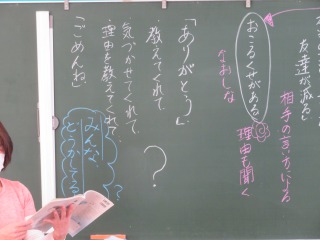 友達が怒る
相手の言い方による
おこるくせがある
なおしな
理由も聞く
「ありがとう」
・教えてくれて
気づかせてくれて
・理由を教えてくれて
「ごめんね」
？
みんな
どうかてる
？